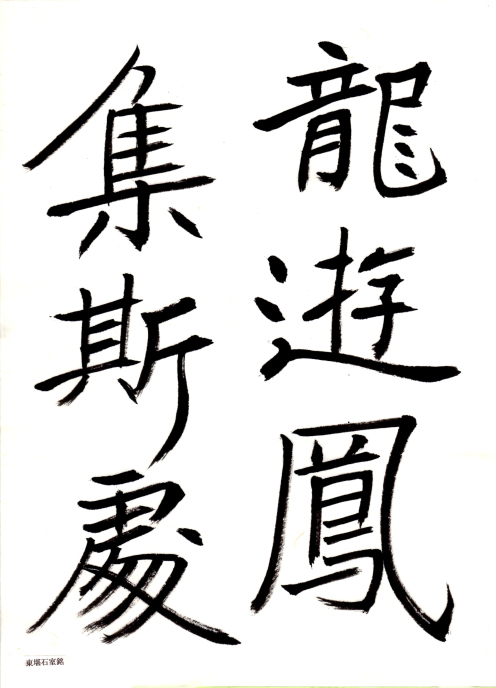 龍遊鳳
集斯處
東堪石室銘